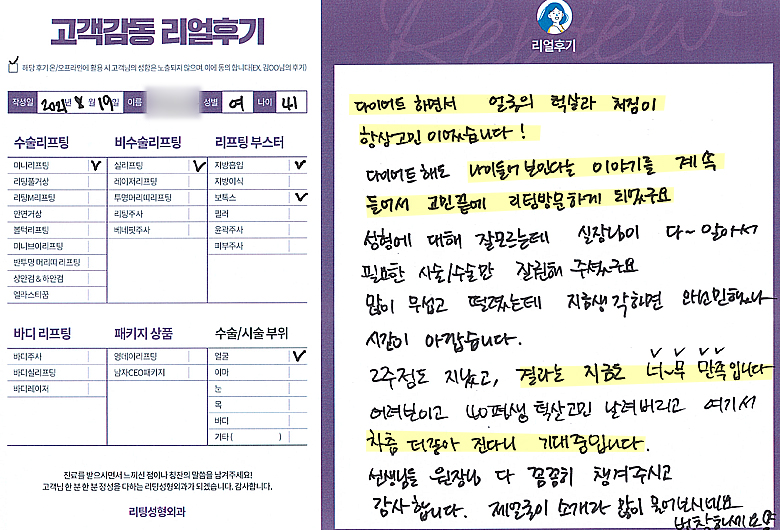 고객감동 리얼후기
해당 후기 온/오프라인에 활용 시 고객님의 성함은 노출되지 않으며, 이에 동의 합니다(EX, 김OO님의 후기)
작성일 2021년 8월 19일 이름 성별 여 나이 41
수술리프팅
미니리프팅
리팅풀거상
리팅M리프팅
안면거상
볼턱리프팅
미니브이리프팅
반투명 머리띠 리프팅
상안검 & 하안검
엘라스티꿈
비수술리프팅
실리프팅
레이저리프팅
투명머리띠리프팅
리팅주사
베네핏주사
리프팅 부스터
지방흡입
지방이식
보톡스
필러
윤곽주사
피부주사
바디 리프팅
바디주사
바디실리프팅
바디레이저
패키지 상품
영데이리프팅
남자CEO패키지
수술/시술 부위
얼굴
이마
눈
목
바디
기타 ( )
진료를 받으시면서 느끼신 점이나 칭찬의 말씀을 남겨주세요!
고객님 한 분 한 분 정성을 다하는 리팅성형외과가 되겠습니다. 감사합니다.
리팅성형외과
Review
리얼후기
다이어트 하면서 얼굴의 턱살과 처짐이
항상고민 이었습니다 !
다이어트 해도 나이들어 보인다는 이야기를 계속
들어서 고민끝에 리팅방문하게 되었구요
성형에 대해 잘모르는데 실장님이 다~ 알아서
필요한 시술/수술만 잘권해 주셨구요
많이 무섭고 떨렸는데 지금생각하면 왜고민했나
시간이 아깝습니다.
2주정도 지났고, 결과는 지금도 너~무 만족입니다
어려보이고 40평생 턱살고민 날려버리고 여기서
차츰 더좋아 진다니 기대중입니다.
선생님들 원장님 다 꼼꼼히 챙겨주시고
감사합니다. 제얼굴이 소개라 많이 물어보시네요
번창하세요